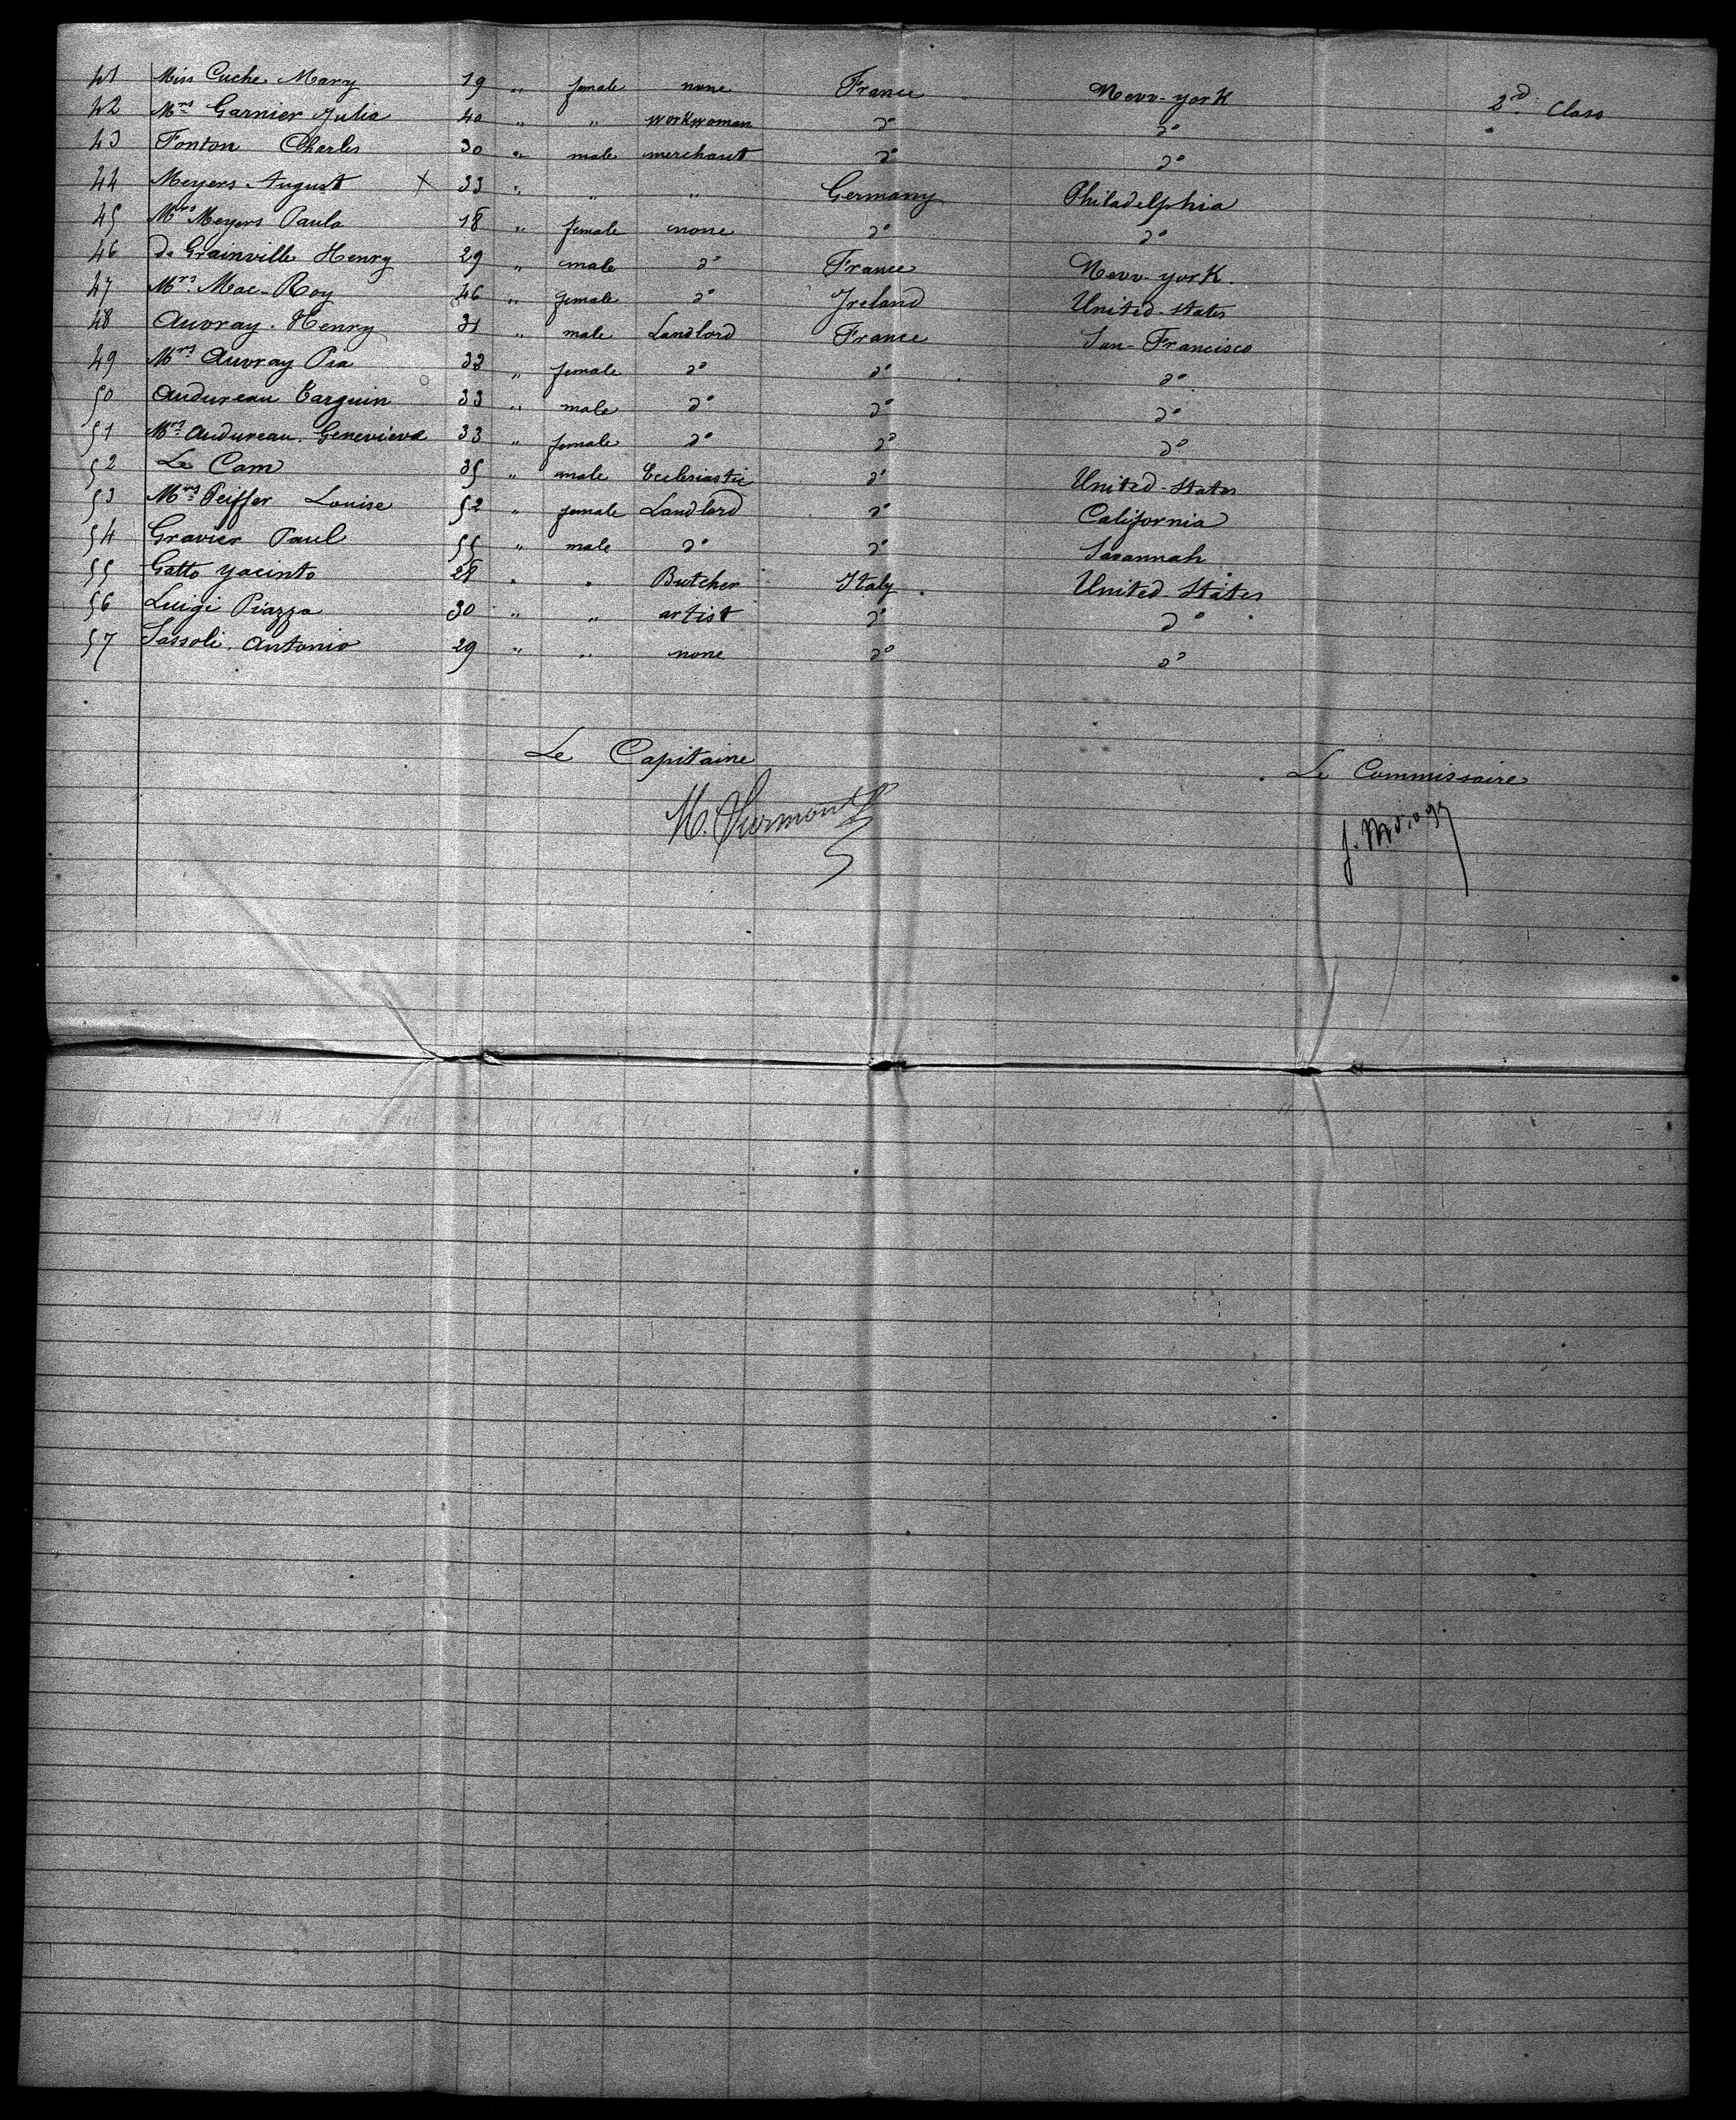 41 Miss Cuche Mary 19 " female none France New-york 2d Class
42 Mrs Garnier Julia 40 " " workwoman do do
43 Fonton Charles 30 " male merchant do do
44 Meyers August X 33 " " " Germany Philadelphia
45 Mrs Meyers Paula 18 " female none do do
46 de Grainville Henry 29 " male do France New-york.
47 Mrs Mac-Roy 46 " female do Ireland United-States
48 Auvray. Henry 31 " male Landlord France San-Francisco
49 Mrs Auvray Pia 32 " female do do do
50 Audureau Tarquin 33 " male do do do
51 Mrs Audureau. Genevieve 33 " female do do do
52 Le Cam 35 " male Ecclesiastic do United-States
53 Mrs Peiffer Louise 52 " female Landlord do California
54 Gravier Paul 55 " male do do Savannah
55 Gatto Yacinto 28 " " Butcher Italy United-States
56 Luigi Piazza 30 " " artist do do
57 Sassoli. Antonio 29 " " none do do
Le Capitaine Le Commissaire